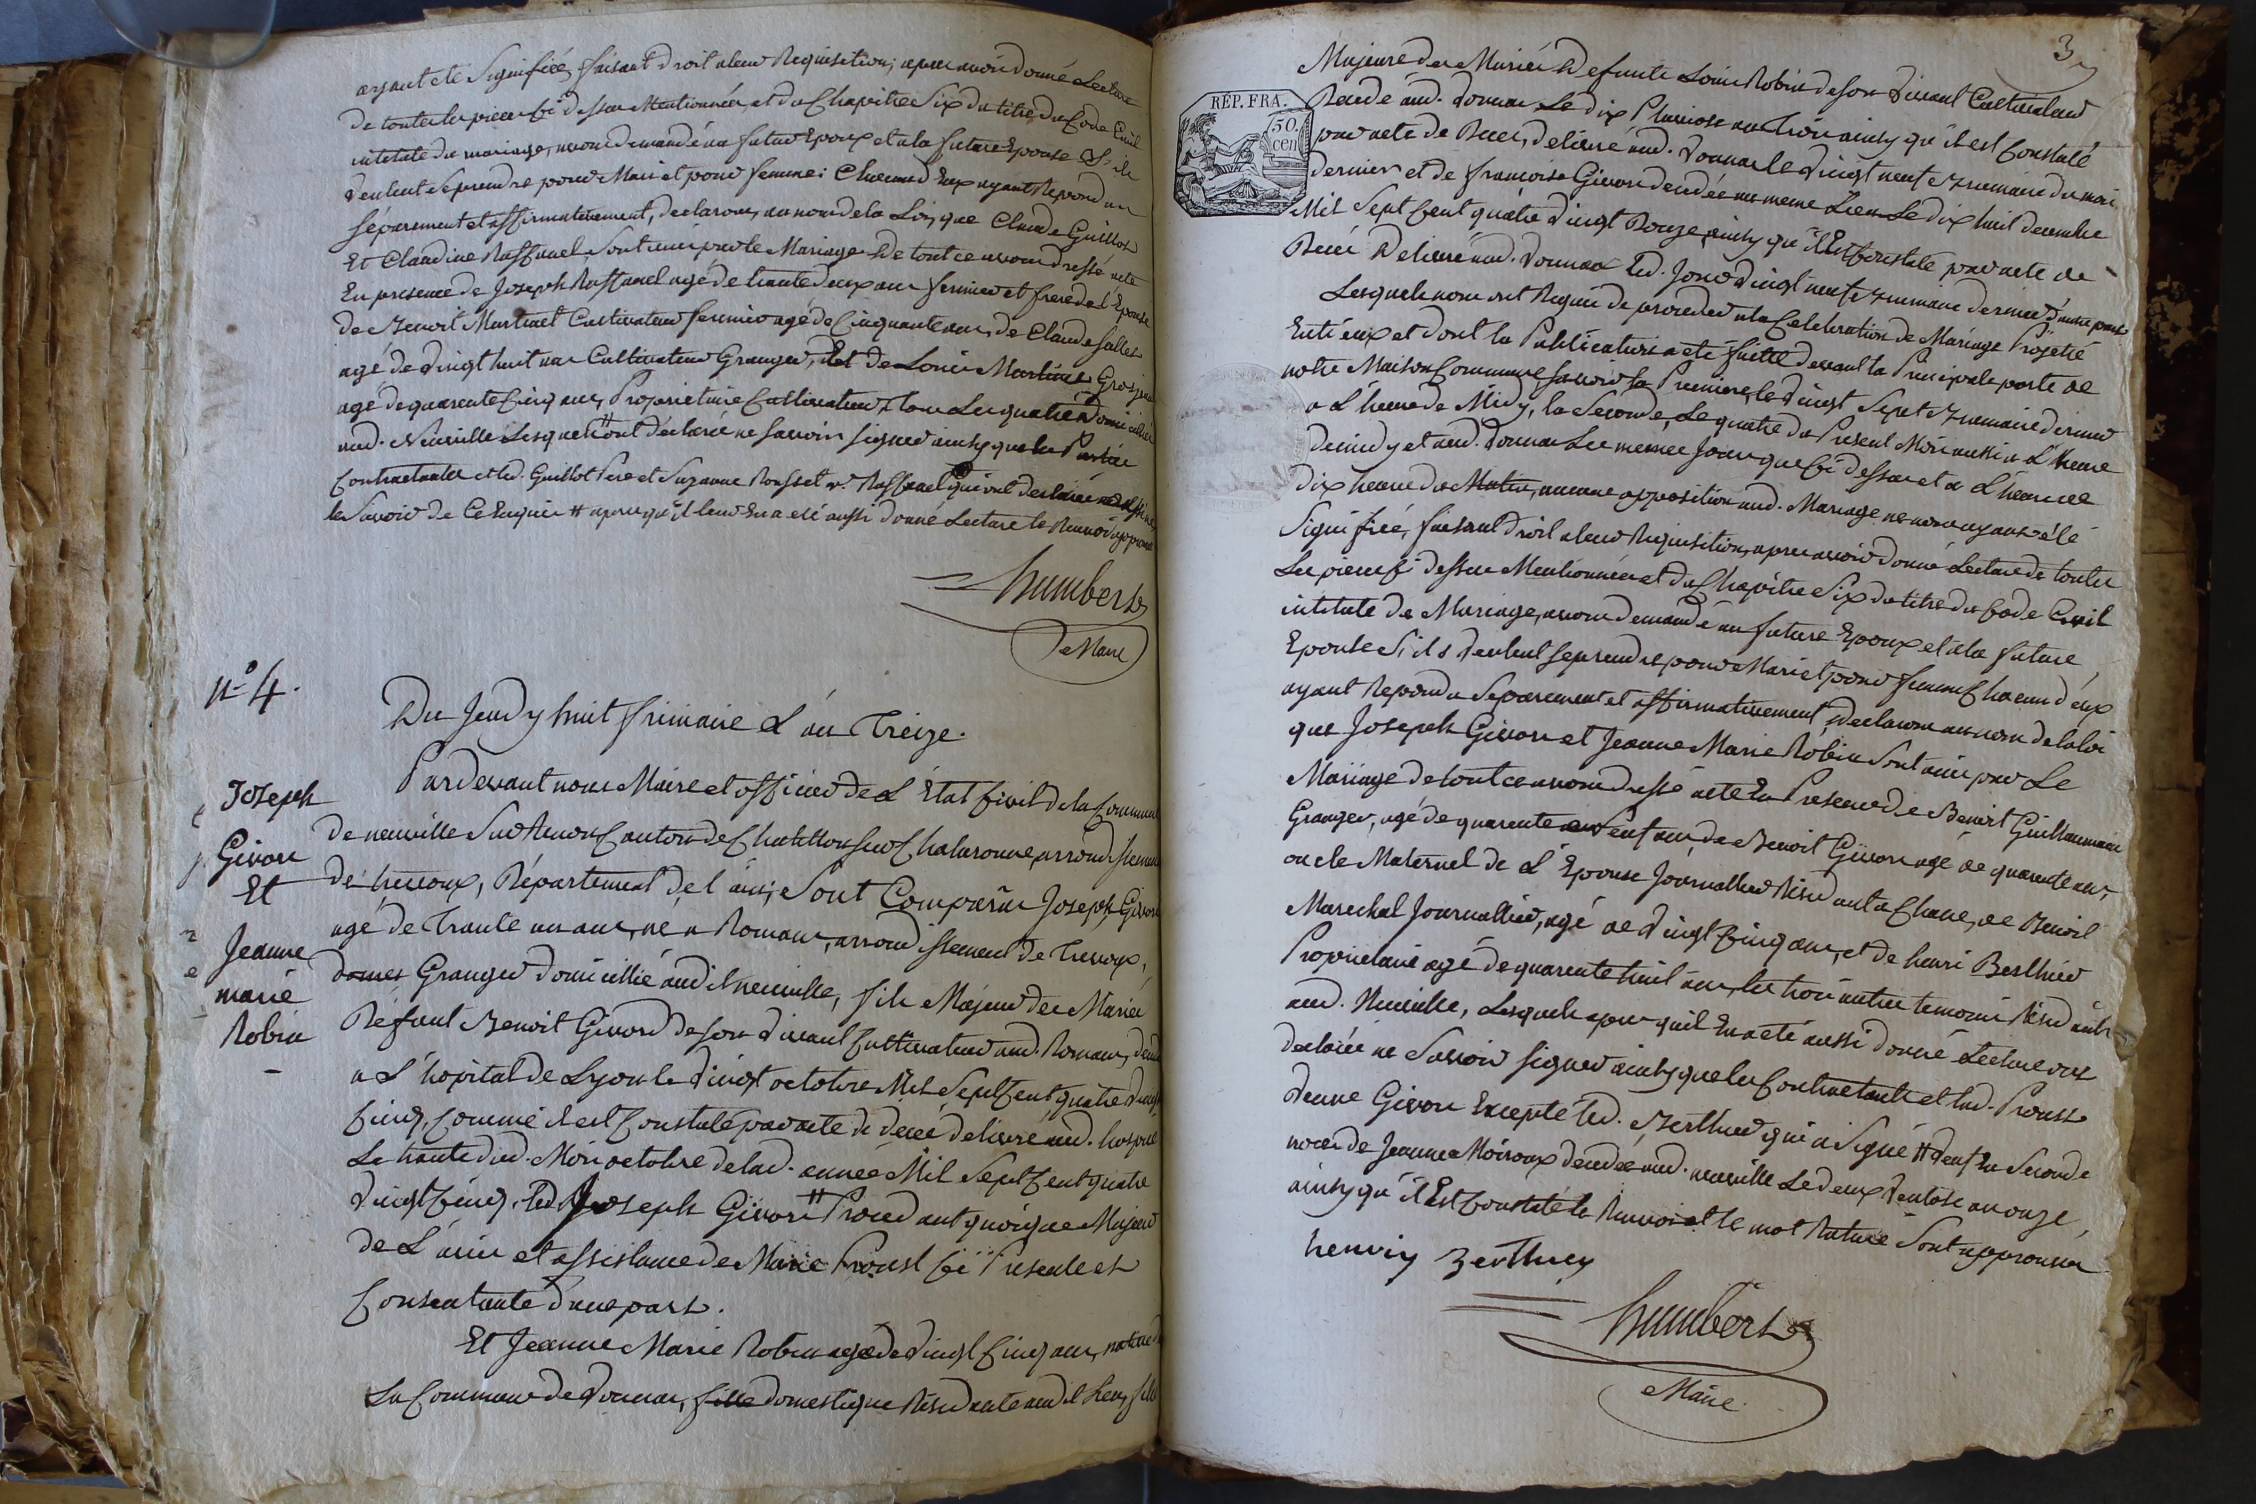 ayant ete Signifiée, faisant droit a leur Requisition; apres avoir donné Lecture
de toutes les pieces cÿ dessus Mentionnées et du Chapitre Six du titre du Code Civil
intitulé du mariage, avons demandé au futur Epoux et a la future Epouse S'ils
veulent Se prendre pour Mari et pour femme; Chacun d'Eux ayant Repondu
séparement et affirmativement, declarons, au nom de la Loi, que Claude Guillot
Et Claudine Raffanel Sont unis par le Mariage De tout ce avons dressé acte
En presence de Joseph Raffanel agé de trente deux ans fermier et frere de l'Epouse
de Benoit Martinet Cultivateur fermier agé de Cinquante ans, de Claude Sallet
agé de vingt huit ans Cultivateur Granger, et de Louis Grosjean
agé de quarente Cinq ans, Proprietaire Cultivateur, tous Les quatre Domiciliés
aud. Neuville Lesquels # ont declaré ne Savoir signer ainsy que les Parties
Contractantes et led. Guillot Pere et Suzanne Rousset v.e Raffanel qui ont declaré
le Savoir de Ce Enquis # apres qu'il leur En a eté aussi donné Lecture le Renvoi approuvé
humbert
Maire
N.° 4.
Du Jeudy huit frimaire L'an Treize.
Joseph
Givore
Et
Jeanne
marie
Robin
Pardevant nous Maire et officier de L'Etat Civil de la Commune
de neuville Sur Renon Canton de Chatillon sur Chalaronne, arrondissement
de trevoux, Département de l'ain; Sont Comparus Joseph Givore
agé de Trante un ans, né a Romans, arrondissement de Trevoux,
domes Granger domicillié audit neuville, fils Majeur des Mariés
Défunt Benoit Givord de Son vivant Cultivateur aud. Romans, decedé
a L'hopital de Lyon le vingt octobre Mil Sept Cent quatre vingt
Cinq, Comme il est Constaté par acte de décé delivré aud. hospice
Le trante dud. Mois octobre de lad. année Mil Sept Cent quatre
vingt Cinq. Led Joseph Givore # Procedant quoique Majeur
de L'avis et assistance de Marie Proust ici Presente et
Consentante d'une part.
Et Jeanne Marie Robin agée de vingt Cinq ans, native de
La Commune de Vonnas, fille domestique Residante aud. lieu, fille
3
RÉP. FRA.
50.
cen
Majeure des Mariés Defunts Louis Robin de Son vivant Cultivateur
Decedé aud. Vonnas Le dix Pluviose an Trois ainsy qu'il est Constaté
par acte de Decés, delivré aud. Vonnas le vingt neuf Brumaire du mois
dernier et de francoise Givore decedée au meme Lieu Le dix huit decembre
Mil Sept Cent quatre vingt Douze, ainsy qu'il Est Constaté par acte de
Decés Delivré aud. Vonnas led. Jour vingt neuf Brumaire dernier d'autre part
Lesquels nous ont Requis de proceder a la Celebration de Mariage Projetté
Entre eux et dont la Publication a eté faitte devant la Principale porte de
notre Maison Commune, savoir la Premiere, le vingt Sept Brumaire dernier
a L'heure de Midy, la Seconde, Le quatre du Present Mois aussi a L'heure
de midy et aud. Vonnas Les memes Jours que Cÿ dessus et a L'heure de
dix heures du Matin, aucune opposition aud. Mariage ne nous ayant été
Signifiée, faisant droit a leur Requisition, apres avoir donné Lecture de toutes
Les pieces Cÿ dessus Mentionnées et du Chapitre Six du titre du Code Civil
intitulé de Mariage, avons demandé au future Epoux et a la future
Epouse S'ils veulent Se prendre pour Mari et pour femme Chacun d'eux
ayant Repondu Separement et affirmativement, declarons au nom de la Loi
que Joseph Givore et Jeanne Marie Robin Sont unis par Le
Mariage de tout ce avons dressé acte En Presence de Benoit Guillaumain
Granger, agé de quarente neuf ans, de Benoit Givore agé de quarente ans,
oncle Maternel de L'Epouse Journallier Residant a Chane, de Benoit
Marechal Journallier, agé de vingt Cinq ans, et de henri Berthier
Proprietaire agé de quarente huit ans, les trois autres temoins Residants
aud. Neuville, Lesquels apres qu'il En a eté aussi donné Lecture ont
declarés ne Savoir signer ainsy que les Contractants et lad. Proust
veuve Givore Excepté led. Berthier qui a Signé # veuf En Seconde
noces de Jeanne Moiroux decedée aud. neuville Le deux Ventose an onze,
ainsy qu'il Est Constaté le Renvoi et le mot Raturé Sont approuvés
henriy Berthier
humbert
Maire